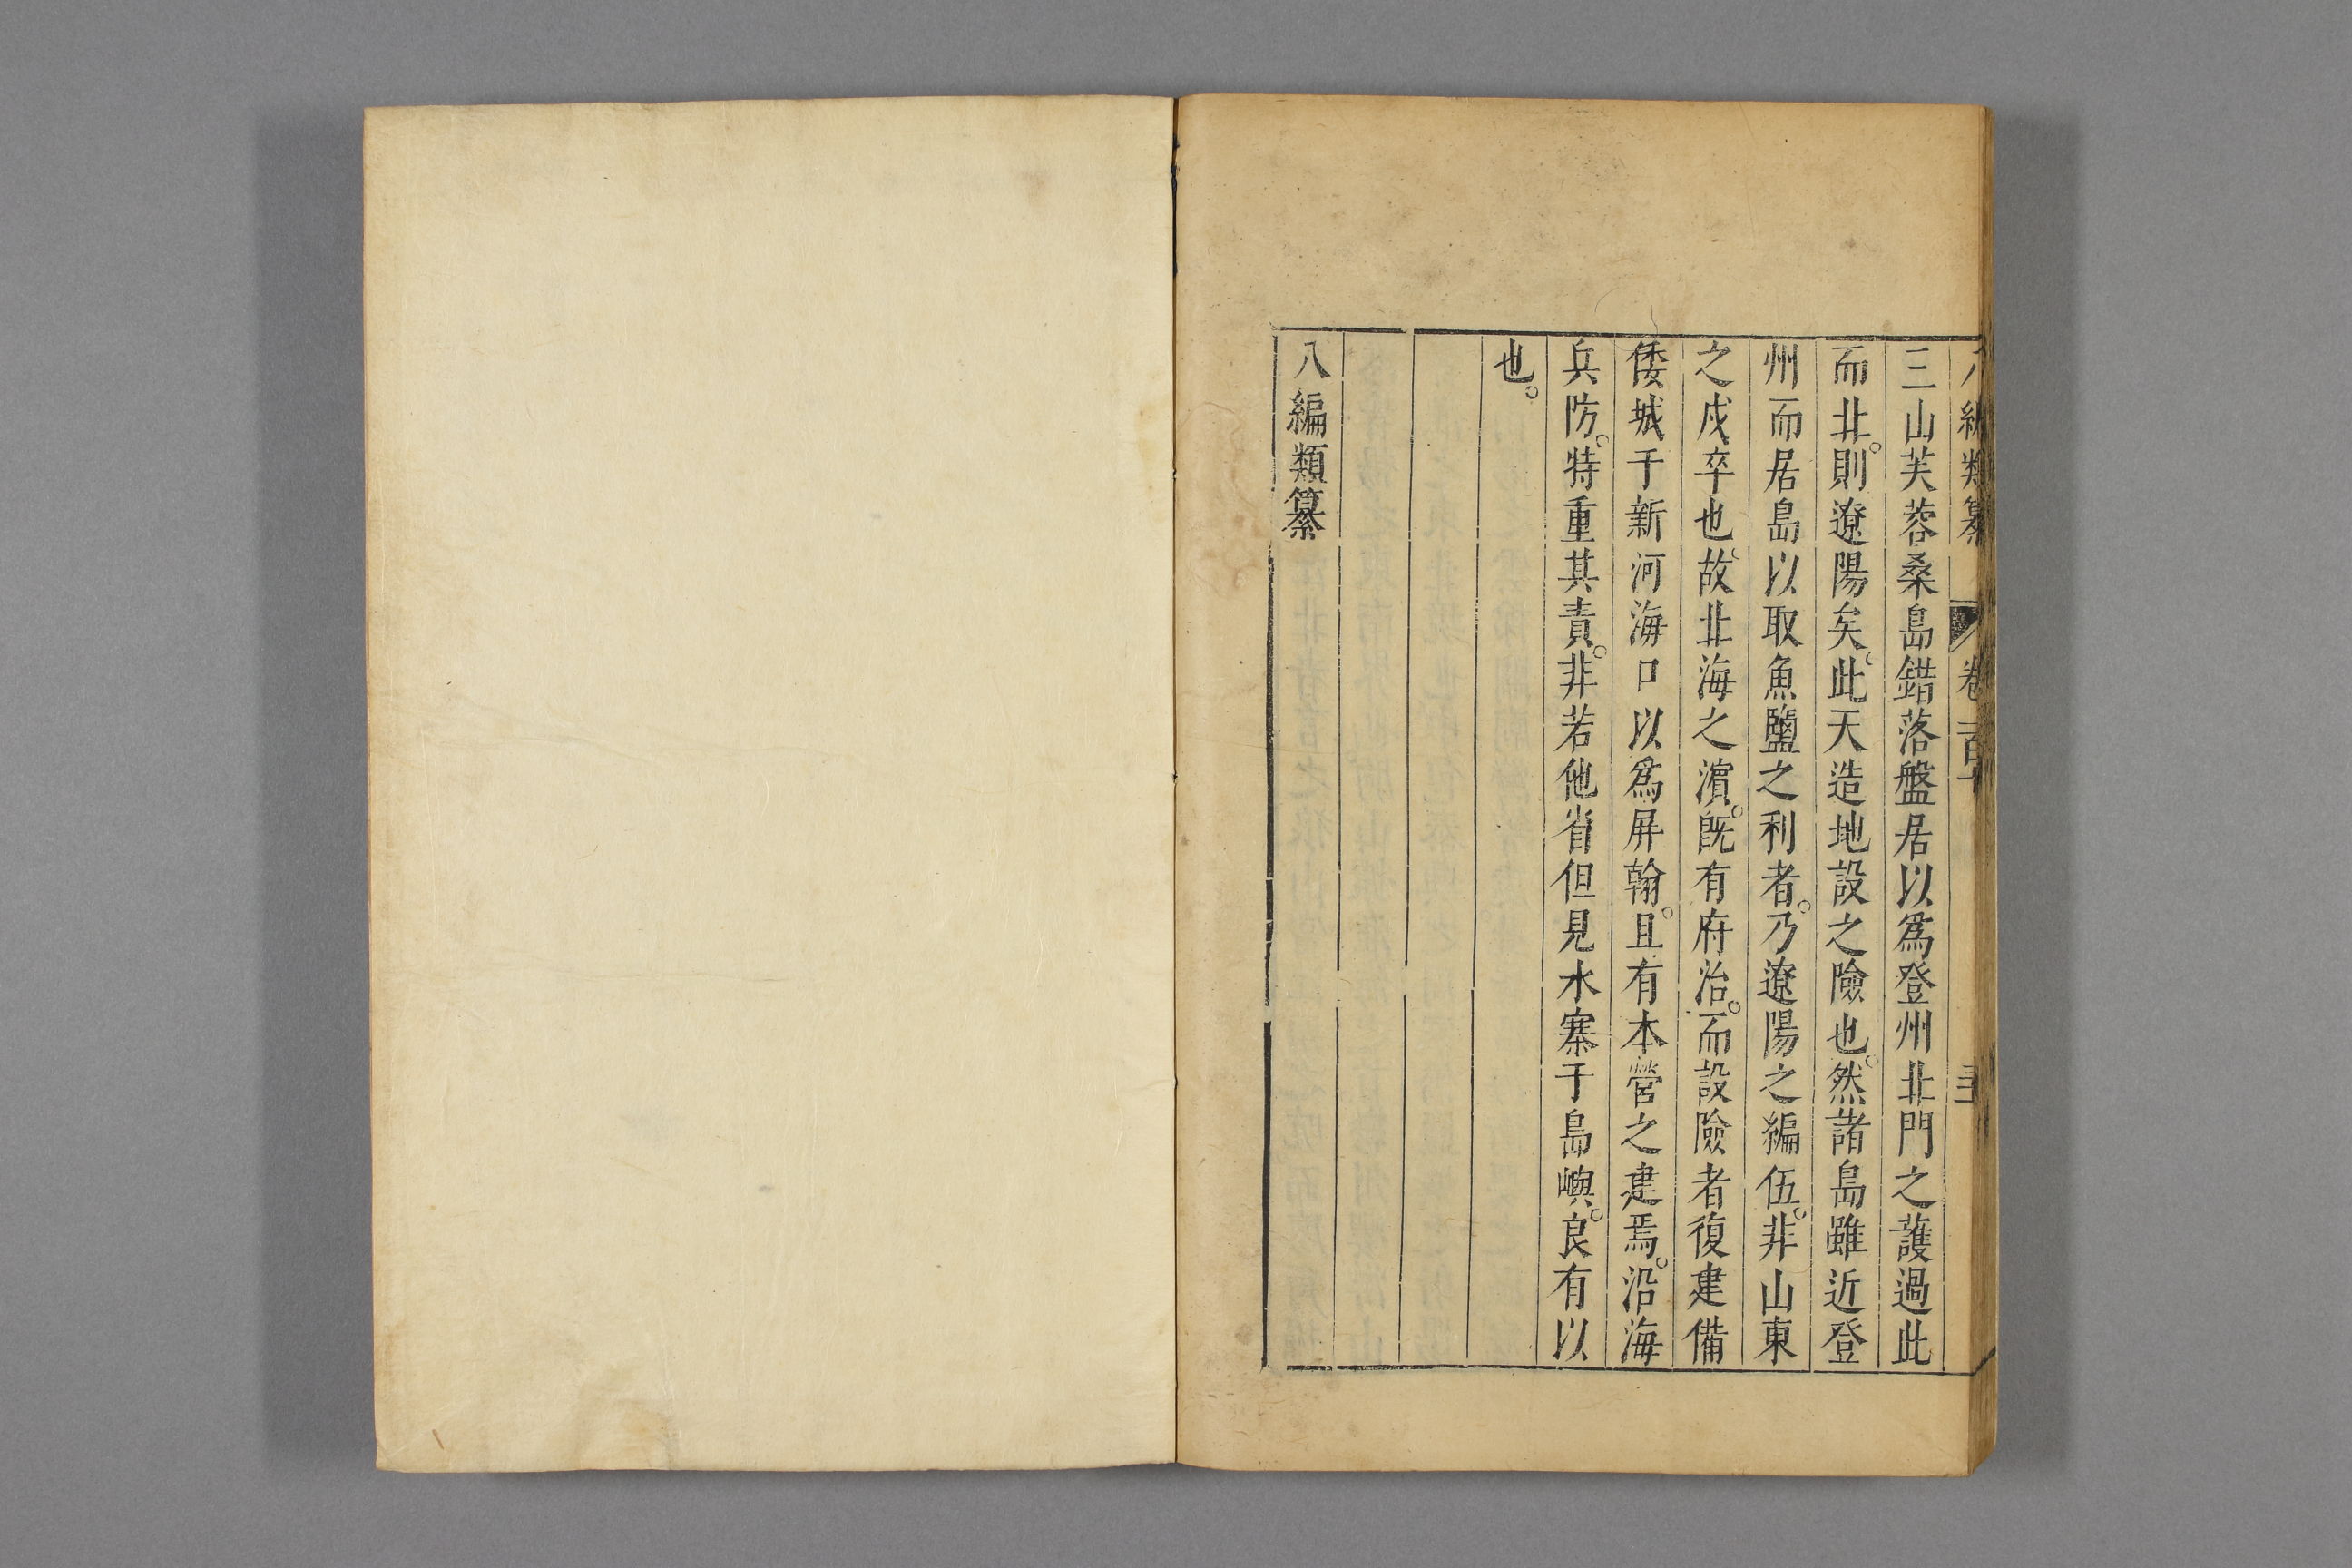 八編類纂 卷一百十
三山芙蓉桑島錯落盤居以爲登州北門之護過此
而北。則遼陽矣。此天造地設之險也。然諸島雖近登
州而居島以取魚鹽之利者。乃遼陽之編伍。非山東
之戍卒也。故北海之濵。旣有府治。而設險者復建備
倭城于新河海口以爲屏翰。且有本營之建焉。沿海
兵防。特重其責。非若他省但見水寨于島嶼。良有以
也。
八編類纂